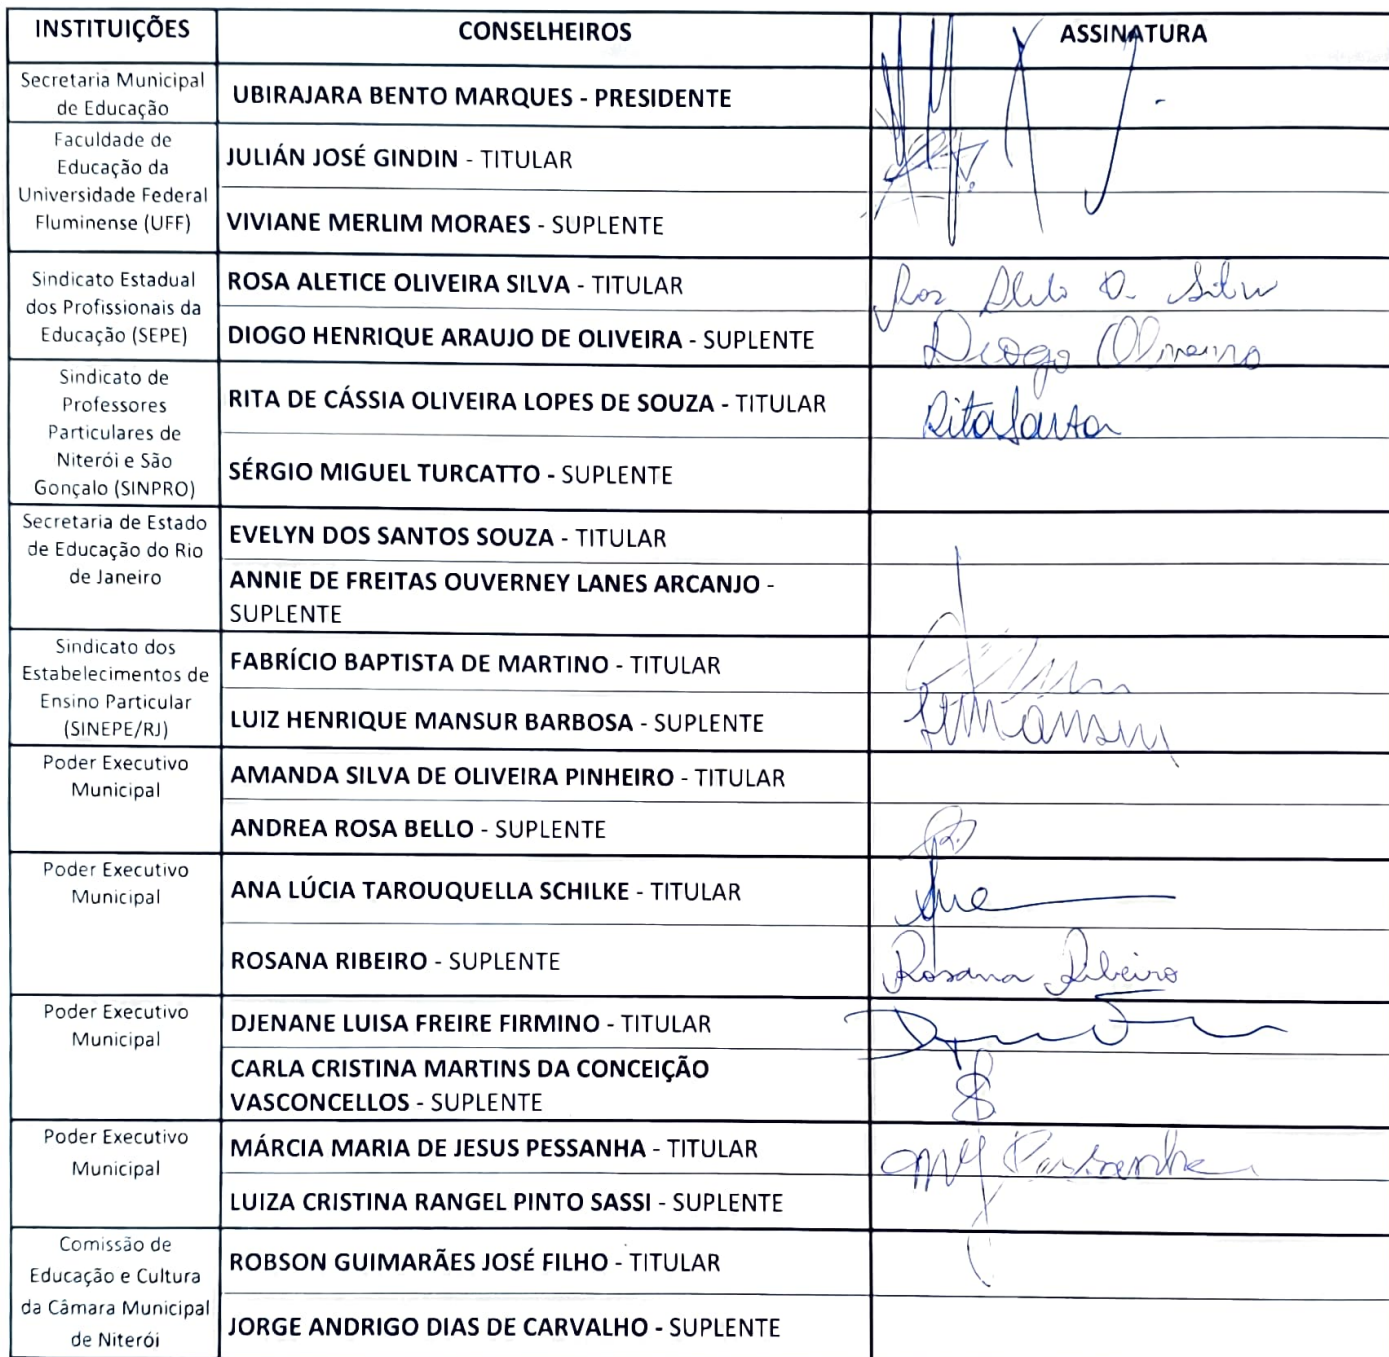 INSTITUIÇÕES CONSELHEIROS ASSINATURA
Secretaria Municipal
de Educação
UBIRAJARA BENTO MARQUES - PRESIDENTE
Faculdade de
Educação da
Universidade Federal
Fluminense (UFF)
JULIÁN JOSÉ GINDIN - TITULAR
VIVIANE MERLIM MORAES - SUPLENTE
Sindicato Estadual
dos Profissionais da
Educação (SEPE)
ROSA ALETICE OLIVEIRA SILVA - TITULAR
DIOGO HENRIQUE ARAUJO DE OLIVEIRA - SUPLENTE
Diogo Oliveira
Sindicato de
Professores
Particulares de
Niterói e São
Gonçalo (SINPRO)
RITA DE CÁSSIA OLIVEIRA LOPES DE SOUZA - TITULAR
SÉRGIO MIGUEL TURCATTO - SUPLENTE
Secretaria de Estado
de Educação do Rio
de Janeiro
EVELYN DOS SANTOS SOUZA - TITULAR
ANNIE DE FREITAS OUVERNEY LANES ARCANJO -
SUPLENTE
Sindicato dos
Estabelecimentos de
Ensino Particular
(SINEPE/RJ)
FABRÍCIO BAPTISTA DE MARTINO - TITULAR
LUIZ HENRIQUE MANSUR BARBOSA - SUPLENTE
Poder Executivo
Municipal
AMANDA SILVA DE OLIVEIRA PINHEIRO - TITULAR
ANDREA ROSA BELLO - SUPLENTE
Poder Executivo
Municipal
ANA LÚCIA TAROUQUELLA SCHILKE - TITULAR
ROSANA RIBEIRO - SUPLENTE
Rosana Ribeiro
Poder Executivo
Municipal
DJENANE LUISA FREIRE FIRMINO - TITULAR
CARLA CRISTINA MARTINS DA CONCEIÇÃO
VASCONCELLOS - SUPLENTE
Poder Executivo
Municipal
MÁRCIA MARIA DE JESUS PESSANHA - TITULAR
LUIZA CRISTINA RANGEL PINTO SASSI - SUPLENTE
Comissão de
Educação e Cultura
da Câmara Municipal
de Niterói
ROBSON GUIMARÃES JOSÉ FILHO - TITULAR
JORGE ANDRIGO DIAS DE CARVALHO - SUPLENTE